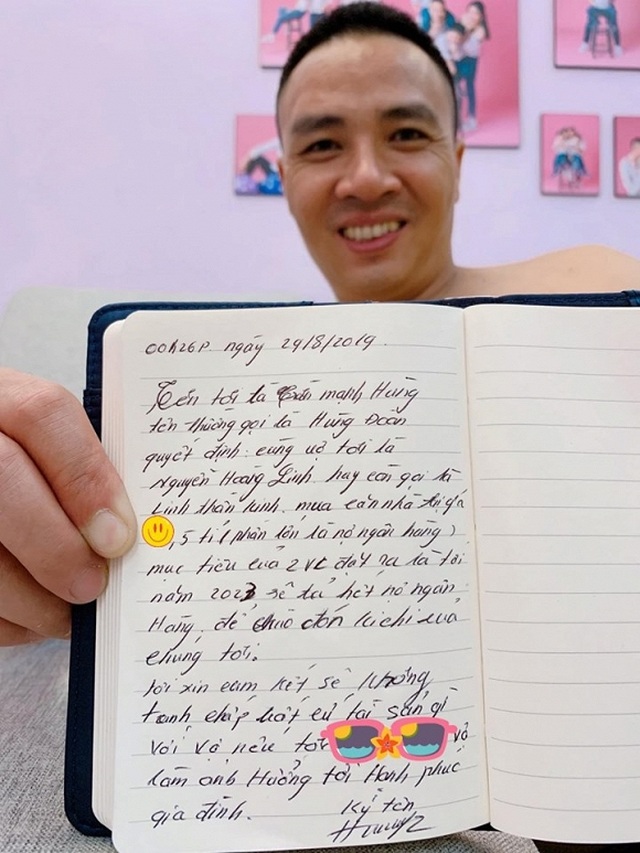 00h26p ngày 29/8/2019.
Tên tôi là Trần mạnh Hùng
tên thường gọi là Hùng Đoàn
quyết định cùng vợ tôi là
Nguyễn Hoàng Linh hay còn gọi là
Linh thần kinh mua căn nhà trị giá
,5 tỉ ( phần lớn là nợ ngân hàng )
mục tiêu của 2 VC đặt ra là tới
năm 2023 sẽ trả hết nợ ngân
Hàng, để đón của
chúng tôi.
tôi xin cam kết sẽ không
tranh chấp bất cứ tài sản gì
với vợ nếu tôi và
làm ảnh Hưởng tới Hạnh phúc
gia đình. Ký tên